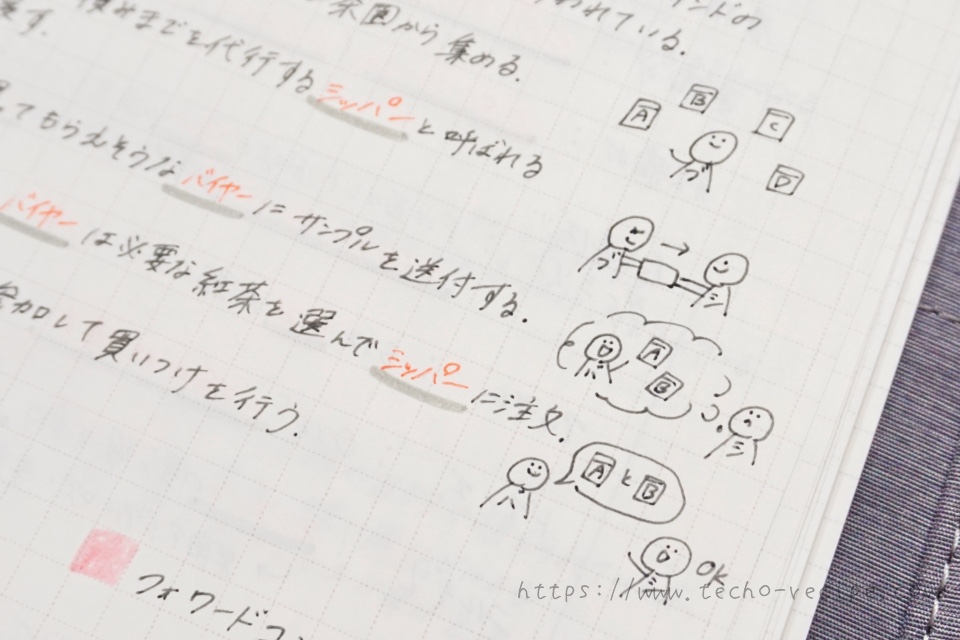 われている。
茶園から集める。
までを代行するシッパーと呼ばれる
してもらえそうなバイヤーにサンプルを送付する。
バイヤーは必要な紅茶を選んでシッパーに注文。
参加して買いつけを行う。
フォワードコン
A
B
C
D
A
B
AとB
OK